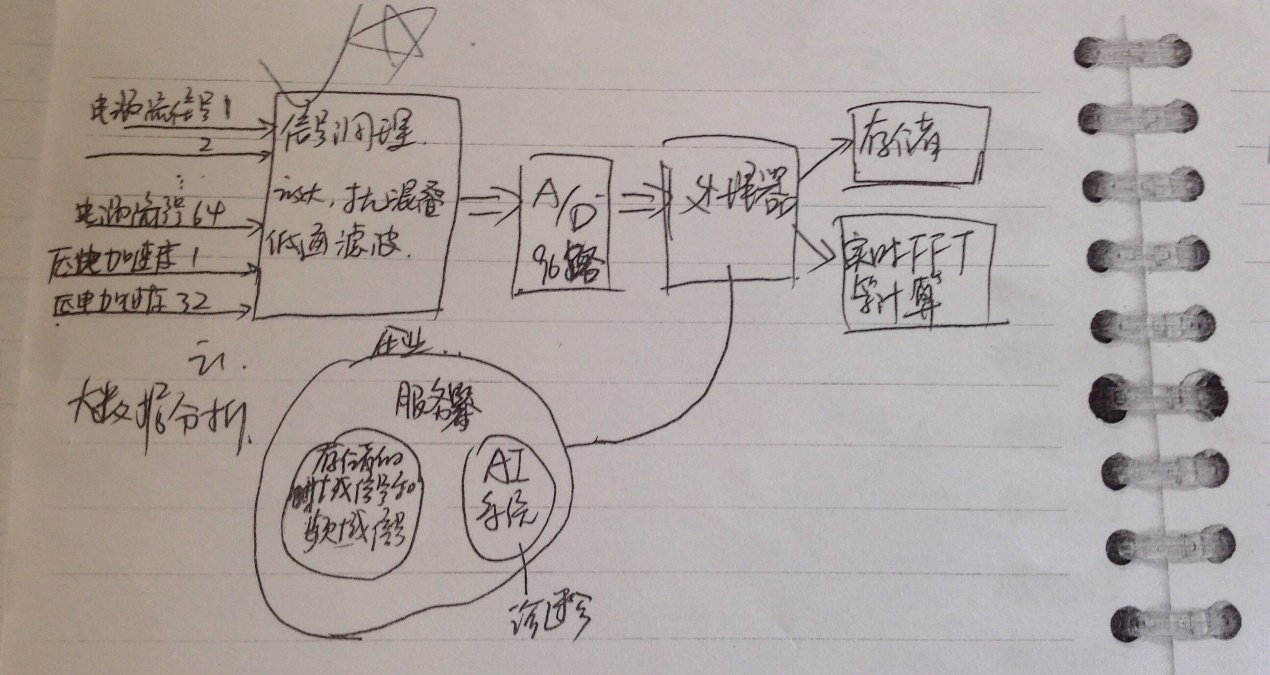 电涡流信号1
2
⋮
电涡流信号64
压电加速度1
压电加速度32
信号调理.
放大,抗混叠
低通滤波.
A/D
96路
处理器
存储
实时FFT
等计算
云.
大数据分析.
服务器
存储的
时域信号和
频域信号
AI
系统